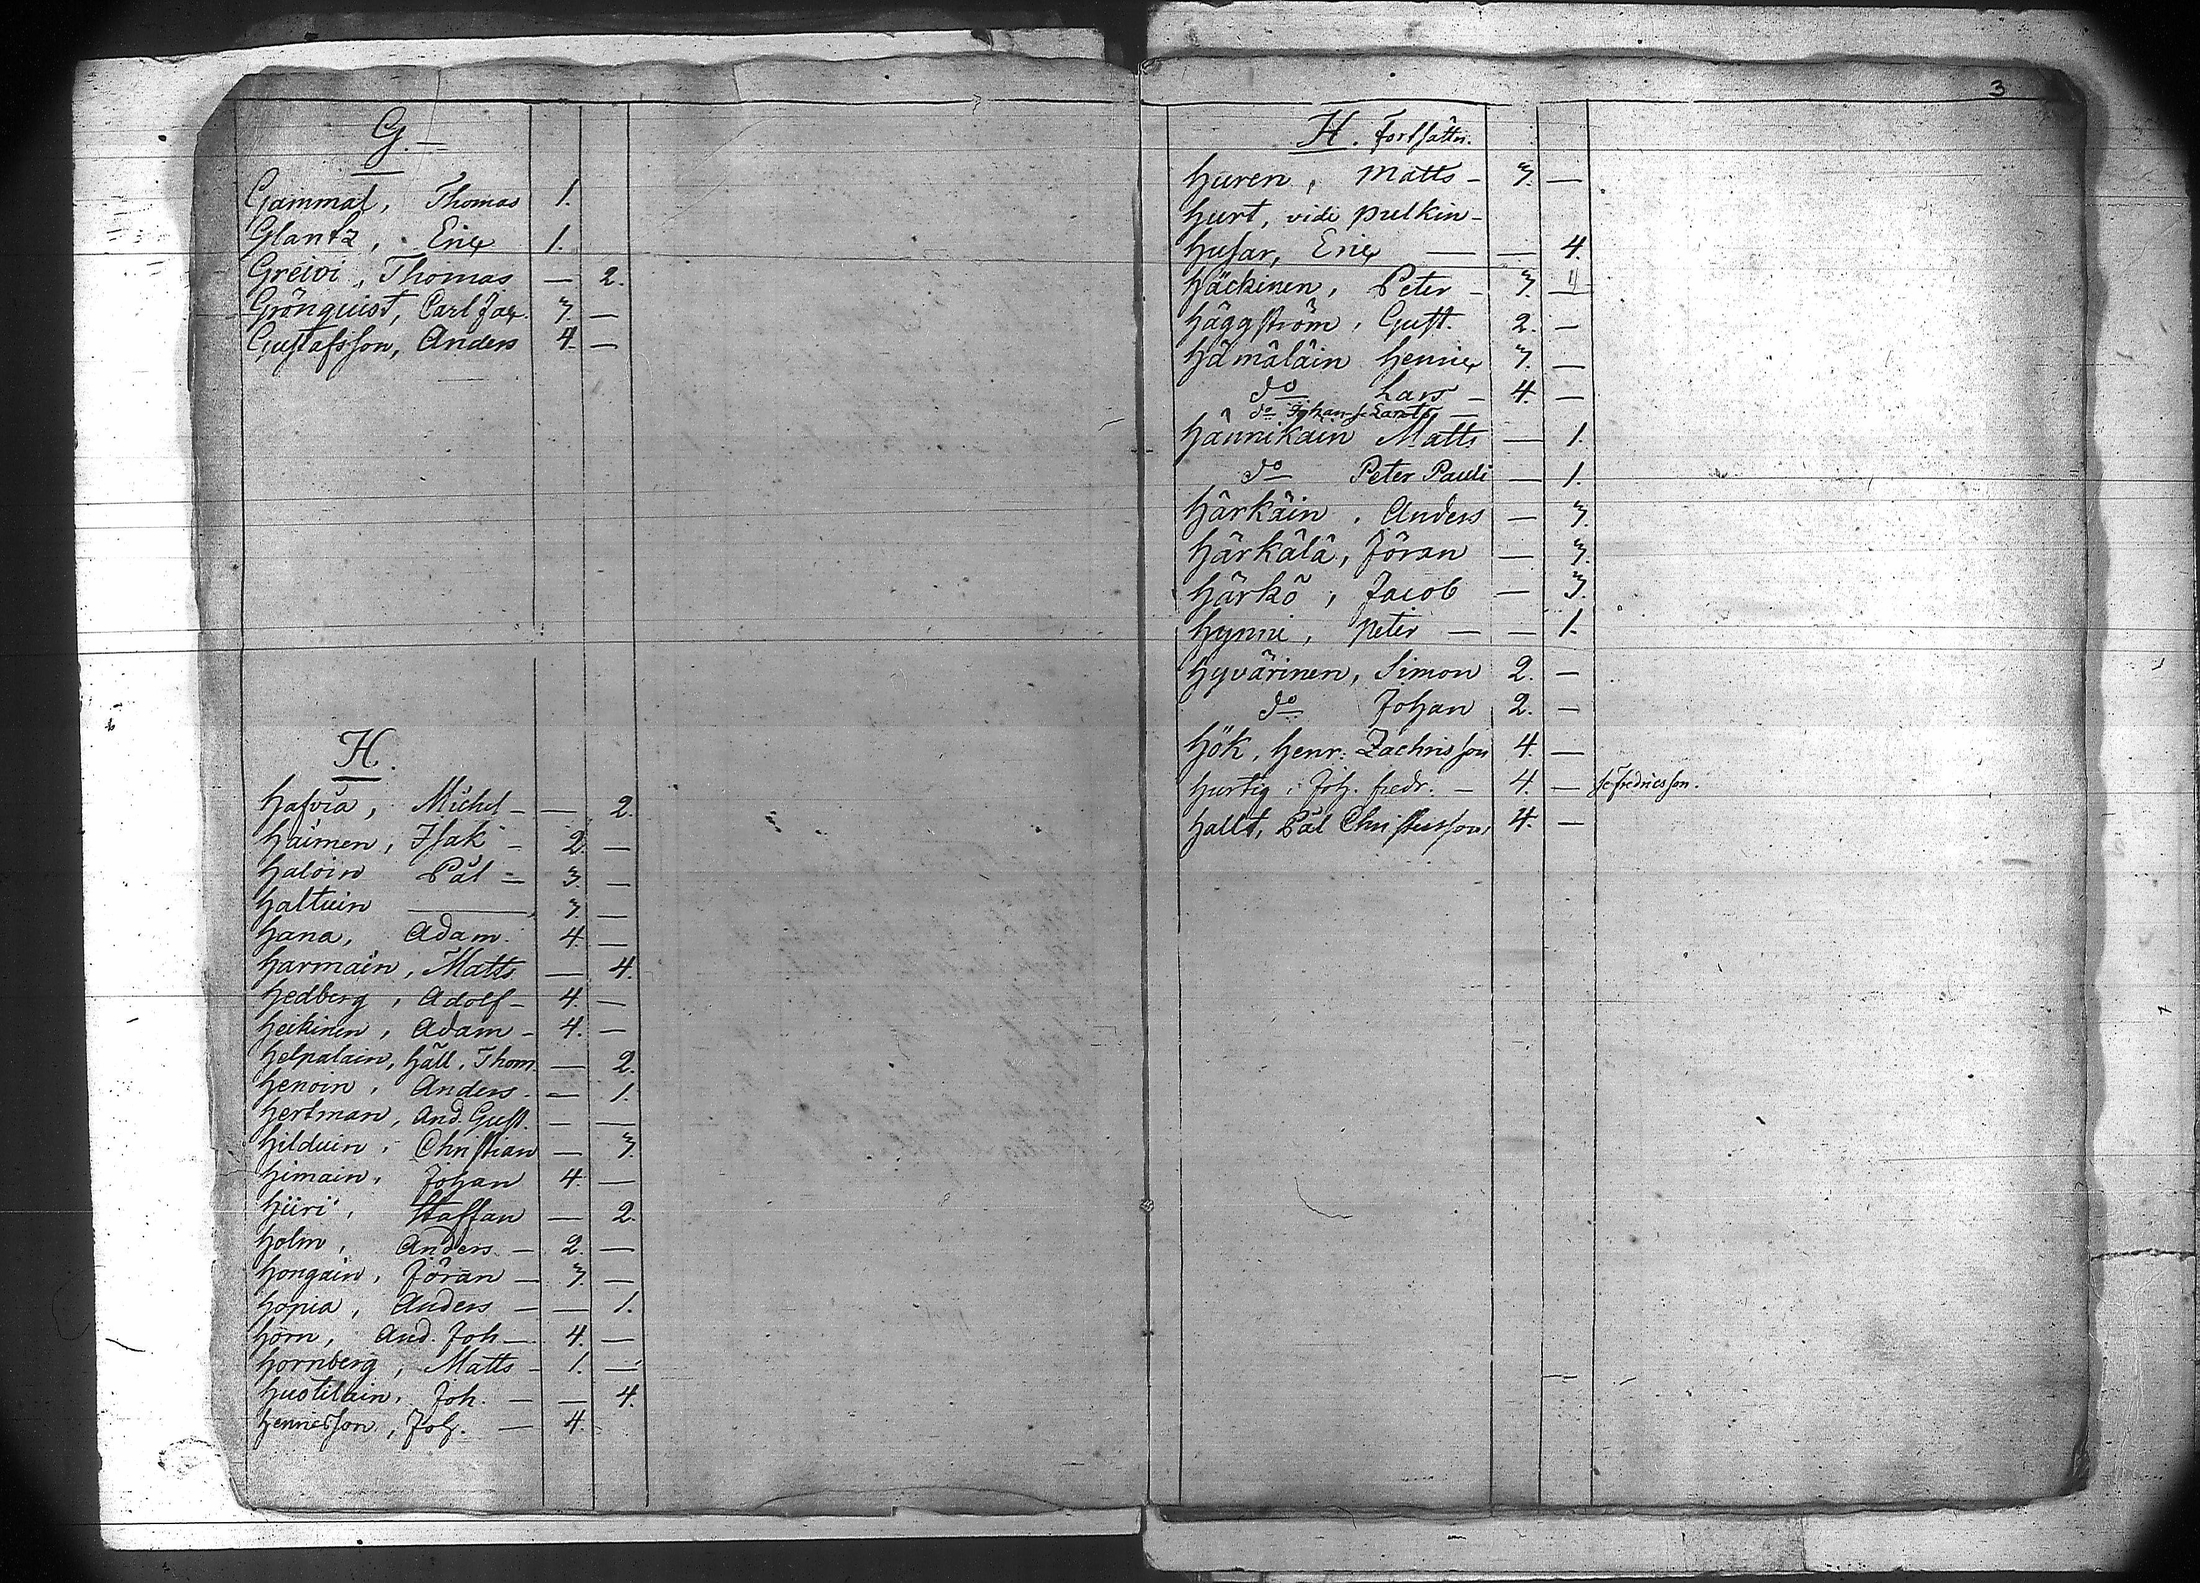 G.
Gammal, Thomas 1.
Glantz, Eric 1.
Greivi, Thomas — 2.
Grönquist, Carl Jac. 3. —
Gustafsson, Anders 4. —
H.
Hafvia, Michel — — 2.
Haimen, Isak — 2. —
Haloin Pål — 3. —
Haltuin —— 3. —
Hana, Adam. 4. —
Harmain, Matts — 4.
Hedberg, Adolf — 4. —
Heikinen, Adam — 4. —
Helpalain, Häll, Thom. — 2.
Henoin, Anders — — 1.
Hertman, And. Gust. — —
Hilduin, Christian — 3.
Himain, Johan 4. —
Hiiri, Staffan — 2.
Holm, Anders — 2. —
Hongain, Jöran — 3. —
Hopia, Anders — — 1.
Horn, And. Joh — 4. —
Hornberg, Matts — 1. —
Huotilain, Joh. — — 4.
Henricsson, Joh. — 4.
3
H. Fortsättn.
Huren, Matts — 3. —
Hurt, vide Pulkin —
Husar, Eric — — 4.
Häckinen, Peter — 3. 4
Häggström, Gust. 2. —
Hämäläin Henric 3. —
do Lars — 4. —
do Johan
Hännikäin Matts — 1.
do Peter Pauli — 1.
Härkäin, Anders — 3.
Härkälä, Jöran — 3.
Härkö, Jacob — 3.
Hynni, Peter — — 1.
Hyvärinen, Simon 2. —
do Johan 2. —
Hök, Henr. Zachrisson 4. —
Hurtig, Joh. Fredr. — 4. — se Fredricsson.
Hallt, Pål Christersson, 4. —